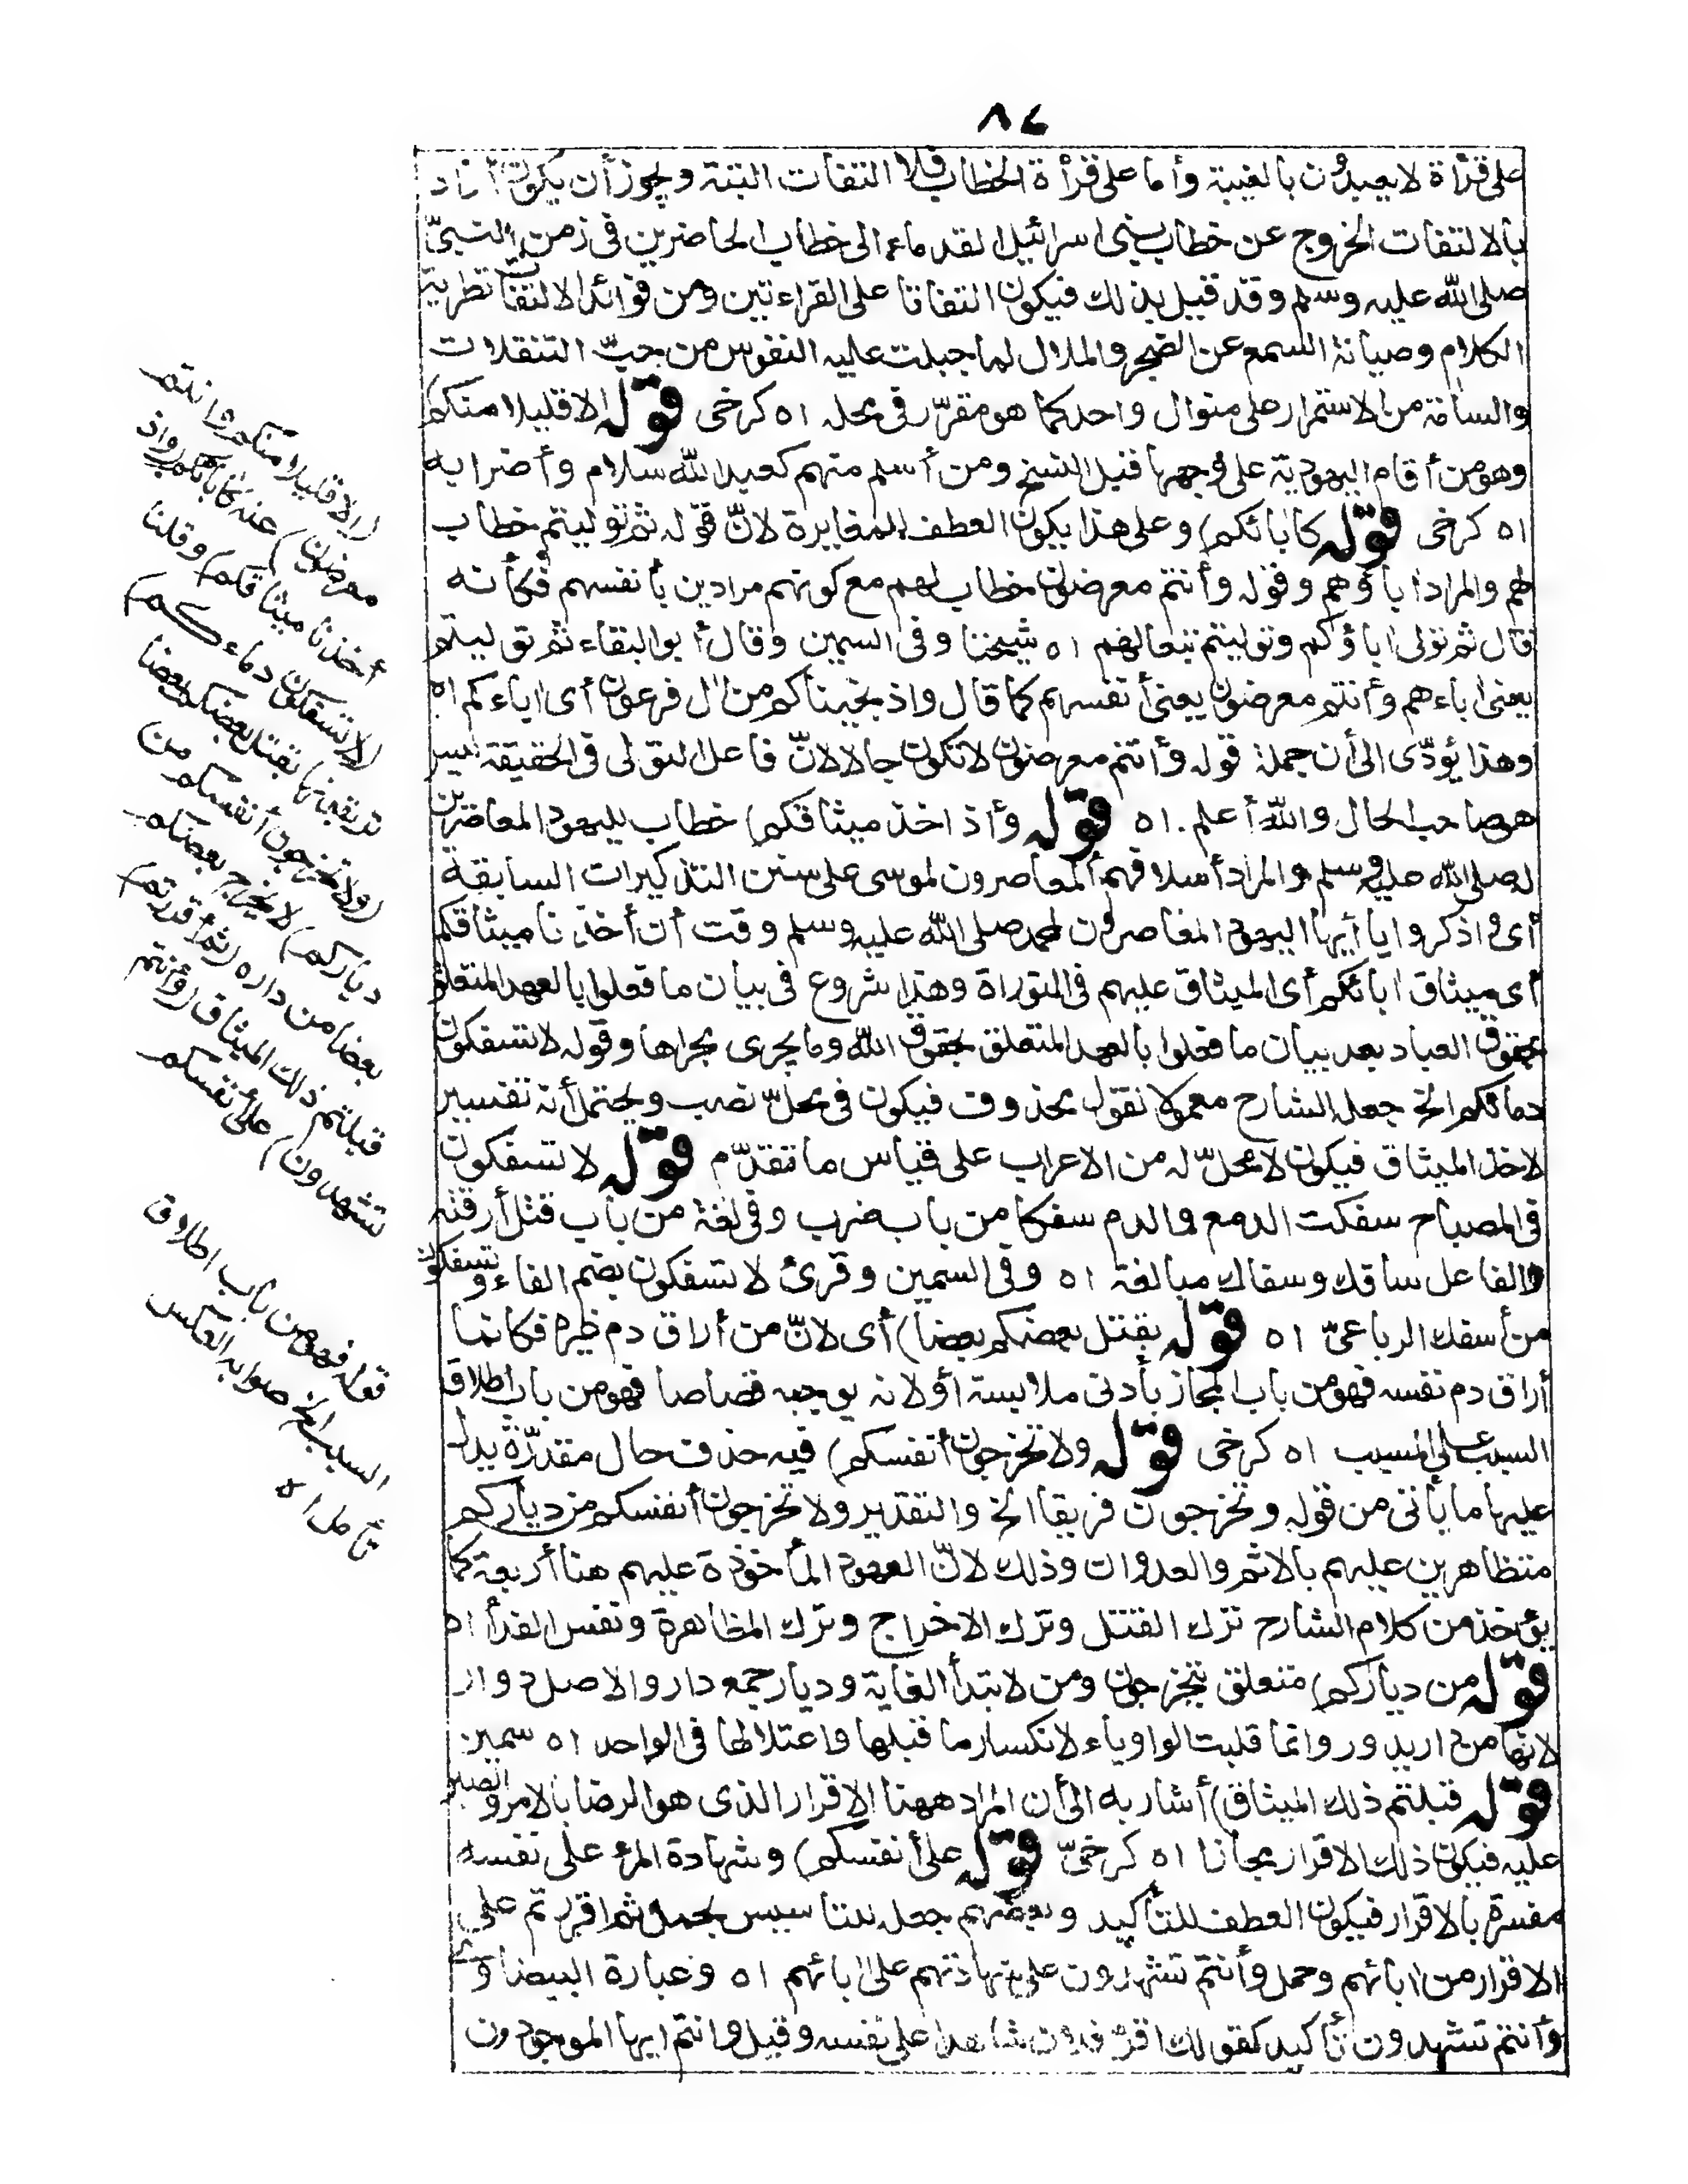 ٨٤
على قرأة لا يعبدون بالغيبة وأما على قرأة الخطاب فلا التفات البتة ويجوز أن يكون أراد
بالالتفات الخروج عن خطاب بنى اسرائيل القدماء الى خطاب الحاضرين فى زمن النبىّ
صلى الله عليه وسلم وقد قيل بذلك فيكون التفاتا على القراءتين ومن فوائد الالتفات تطرية
الكلام وصيانة السمع عن الضجر والملال لما جبلت عليه النفوس من حبّ التنقلات
والسآمة من الاستمرار على منوال واحد كما هو مقرّر فى محله اه كرخى قوله الا قليلا منكم
وهو من أقام اليهودية على وجهها قبل النسخ ومن أسلم منهم كعبد الله سلام وأضرابه
اه كرخى قوله كآبائكم) وعلى هذا يكون العطف للمغايرة لانّ قوله ثم توليتم خطاب
لهم والمراد اباؤهم وقوله وأنتم معرضون خطاب لهم مع كونهم مرادين بأنفسهم فكأنه
قال ثم تولى اباؤكم وتوليتم تبعا لهم اه شيخنا وفى السمين وقال أبو البقاء ثم توليتم
يعنى اباءهم وأنتم معرضون يعنى أنفسهم كما قال واذ نجيناكم من ال فرعون أى اباءكم اه
وهذا يؤدّى الى أن جملة قوله وأنتم معرضون لا تكون حالا لانّ فاعل التولى فى الحقيقة ليس
هو صاحب الحال والله أعلم. اه قوله وأذ اخذ ميثاقكم) خطاب لليهود المعاصرين
له صلى الله عليه وسلم والمراد أسلافهم المعاصرون لموسى على سنن التذكيرات السابقة
أى واذكروا يا أيها اليهود المعاصرون لمحمد صلى الله عليه وسلم وقت أن أخذنا ميثاقكم
أى ميثاق ابائكم أى الميثاق عليهم فى التوراة وهذا شروع فى بيان ما فعلوا بالعهد المتعلق
بحقوق العباد بعد بيان ما فعلوا بالعهد المتعلق بحقوق الله وما يجرى مجراها وقوله لا تسفكون
دمائكم الخ جعله الشارح معمولا نقول محذوف فيكون فى محلّ نصب ويحتمل أنه تفسير
لاخذ الميثاق فيكون لا محلّ له من الاعراب على قياس ما تقدّم قوله لا تسفكون
فى المصباح سفكت الدمع والدم سفكا من باب ضرب وفى لغة من باب قتل أرقته
والفاعل سافك وسفاك مبالغة اه وفى السمين وقرئ لا تسفكون بضم الفاء وتسفكون
من أسفك الرباعىّ اه قوله بقتل بعضكم بعضا) أى لانّ من أراق دم غيره فكانما
أراق دم نفسه فهو من باب المجاز بأدنى ملابسة أو لانه يوجبه قصاصا فهو من باب اطلاق
السبب على المسبب اه كرخى قوله ولا تخرجون أنفسكم) فيه حذف حال مقدّرة يدل
عليها ما يأتى من قوله وتخرجون فريقا الخ والتقدير ولا تخرجون أنفسكم من دياركم
متظاهرين عليهم بالاثم والعدوان وذلك لانّ العهود المأخوذة عليهم هنا أربعة كما
يؤخذ من كلام الشارح ترك القتل وترك الاخراج وترك المظاهرة ونفس الفدأ اه
قوله من دياركم) متعلق بتخرجون ومن لابتدأ الغاية وديار جمع دار والاصل دوار
لانها من دار يدور وانما قلبت الواو ياء لانكسار ما قبلها واعتلالها فى الواحد اه سمين
قوله قبلتم ذلك الميثاق) أشار به الى أن المراد ههنا الاقرار الذى هو الرضا بالامر والصبر
عليه فيكون ذلك الاقرار مجازا اه كرخىّ قوله على أنفسكم) وشهادة المرء على نفسه
مفسرة بالاقرار فيكون العطف للتأكيد وبعضهم جعله للتأسيس بحمل ثم اقررتم على
الاقرار من ابائهم وحمل وأنتم تشهدون على شهادتهم على ابائهم اه وعبارة البيضاوى
وأنتم تشهدون تأكيد كقولك اقرّ فلان شاهدا على نفسه وقيل وانتم ايها الموجودون
(الا قليلا منكم وانتم
معرضون) عنه كآبائكم (واذ
أخذنا ميثاقكم) وقلنا
(لا تسفكون دماءكم)
تريقونها بقتل بعضكم بعضا
(ولا تخرجون أنفسكم من
دياركم) لا يخرج بعضكم
بعضا من داره (ثم أقررتم)
قبلتم ذلك الميثاق (وأنتم
تشهدون) على أنفسكم
قوله فهو من باب اطلاق
السبب الخ صوابه العكس
تأمل اه